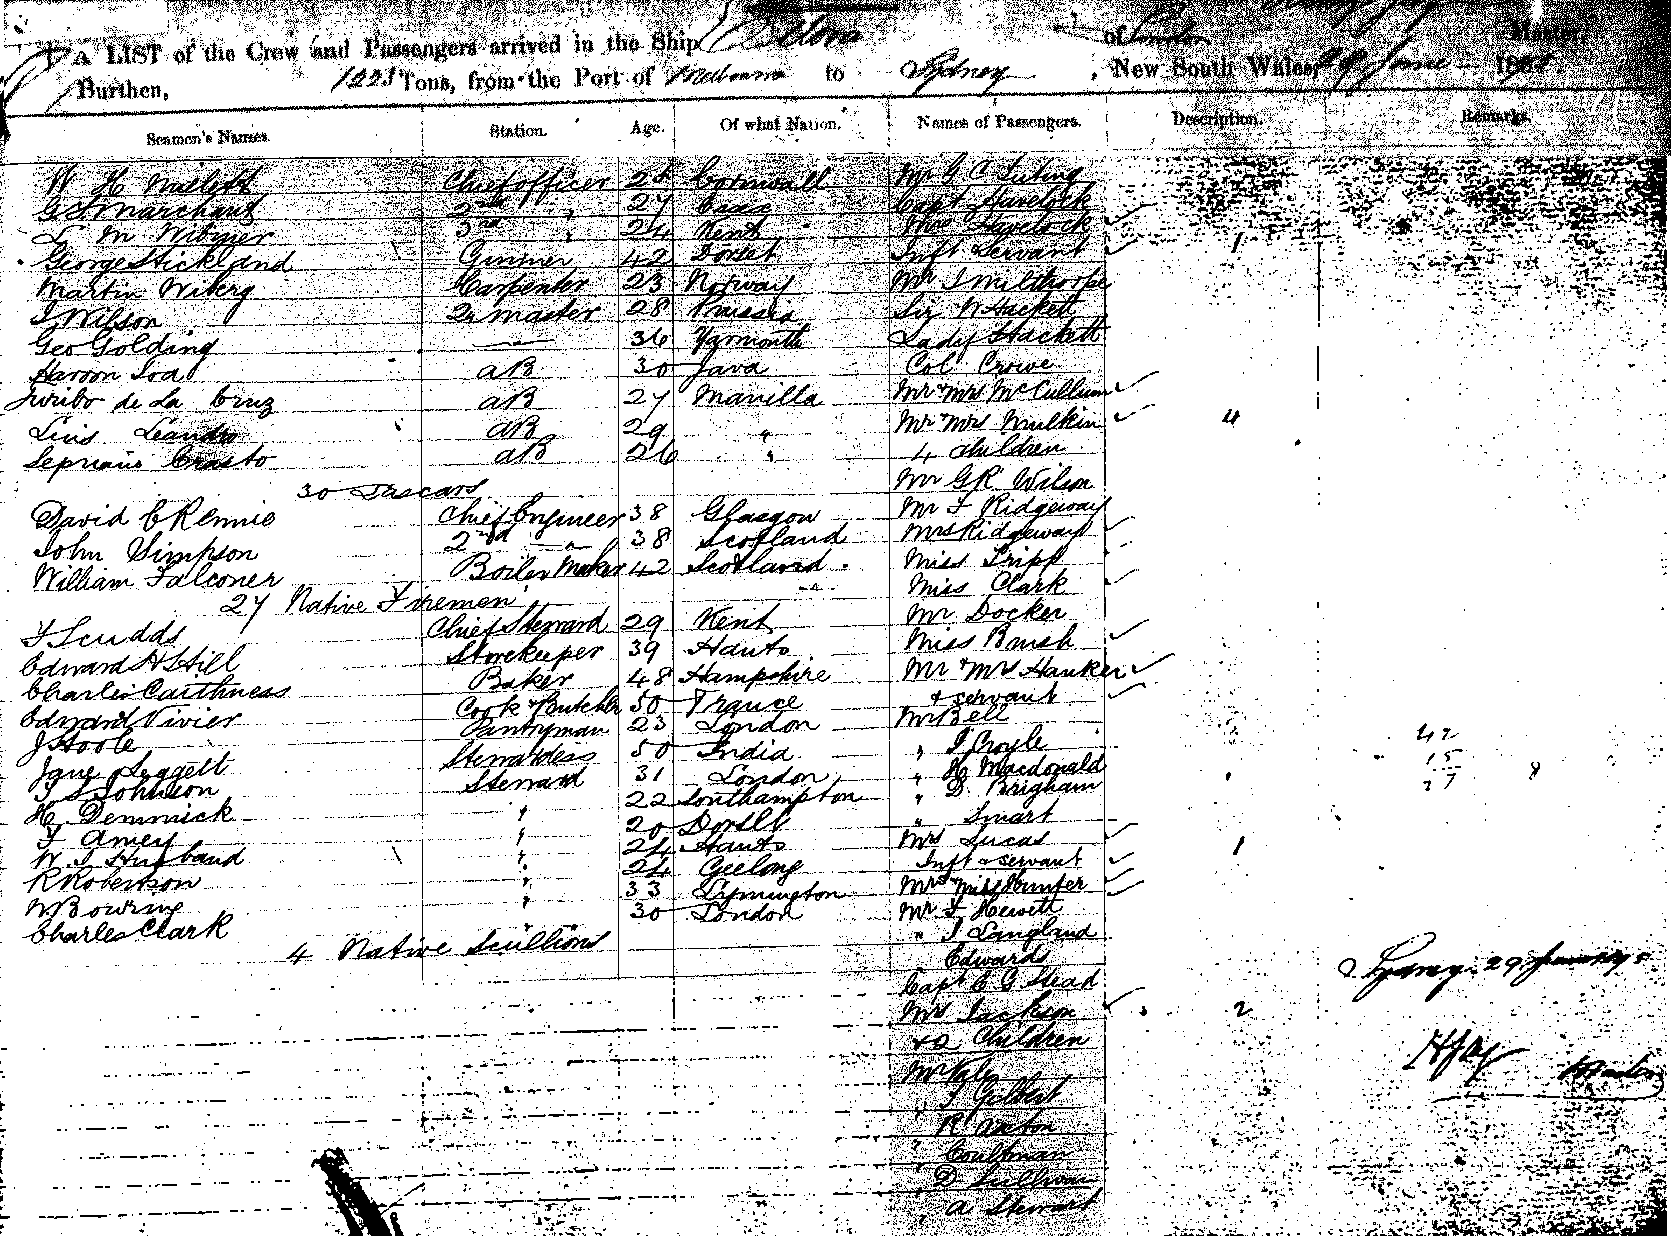 A LIST of the Crew and Passengers arrived in the Ship of London Master,
Burthen, 1221 Tons, from the Port of Melbourne to Sydney, New South Wales,
Seamen's Names. Station. Age. Of what Nation. Names of Passengers. Description. Remarks.
W H Chief officer Cornwall Mr
G Marchant 2nd " 27 Capt Havelock
L M 3rd " 24 Kent Mrs Havelock
George Stickland Gunner 42 Dorset Inft Servant 1
Martin Wiberg Carpenter 23 Norway Mr J Milthorpe
J Wilson Qr master 28 Prussia Sir W Hackett
Geo Golding 36 Yarmouth Lady Hackett
Haroon aB 30 Java Col Crowe
de La Cruz aB 27 Manilla Mr & Mrs McCullum
Luis Leandro aB 29 " Mr & Mrs Mulkin 4
Crasto aB 26 " 4 children
30 Lascars Mr G R Wilson
David C Rennie Chief Engineer 38 Glasgow Mr F Ridgeway
John Simpson 2nd " 38 Scotland Mrs Ridgeway
William Falconer Boiler Maker 42 Scotland Miss Tripp
27 Native Firemen " Miss Clark
F Scudds Chief Steward 29 Kent Mr Docker
Edward H Still Storekeeper 39 Hants Miss Brush
Charles Caithness Baker 48 Hampshire Mr & Mrs Hanker
Edward Vivier Cook & Butcher 50 France & servant
J Hoole Pantryman 23 London Mr Bell
Jane Suggett Stewardess 50 India " J Croyle
Johnson Steward 31 London " H Macdonald
H Demmick " 22 Southampton " D Brigham
F Amey " 20 Dorset " Smart
W J Husband " 24 Hants Mrs Lucas 1
R Robertson " 24 Geelong Inft & servant
W Bowring " 33 Lymington Mrs & Miss Hunter
Charles Clark 30 London Mr J Hewett
4 Native Scullions " J Langland
Edwards
Capt E G Stead
Mrs Jackson 2
& 2 Children
Mr
" J Gilbert
" R
" Coultman
" D Sullivan
" A Stewart
42
15
27
Sydney 29
H Jay
Master